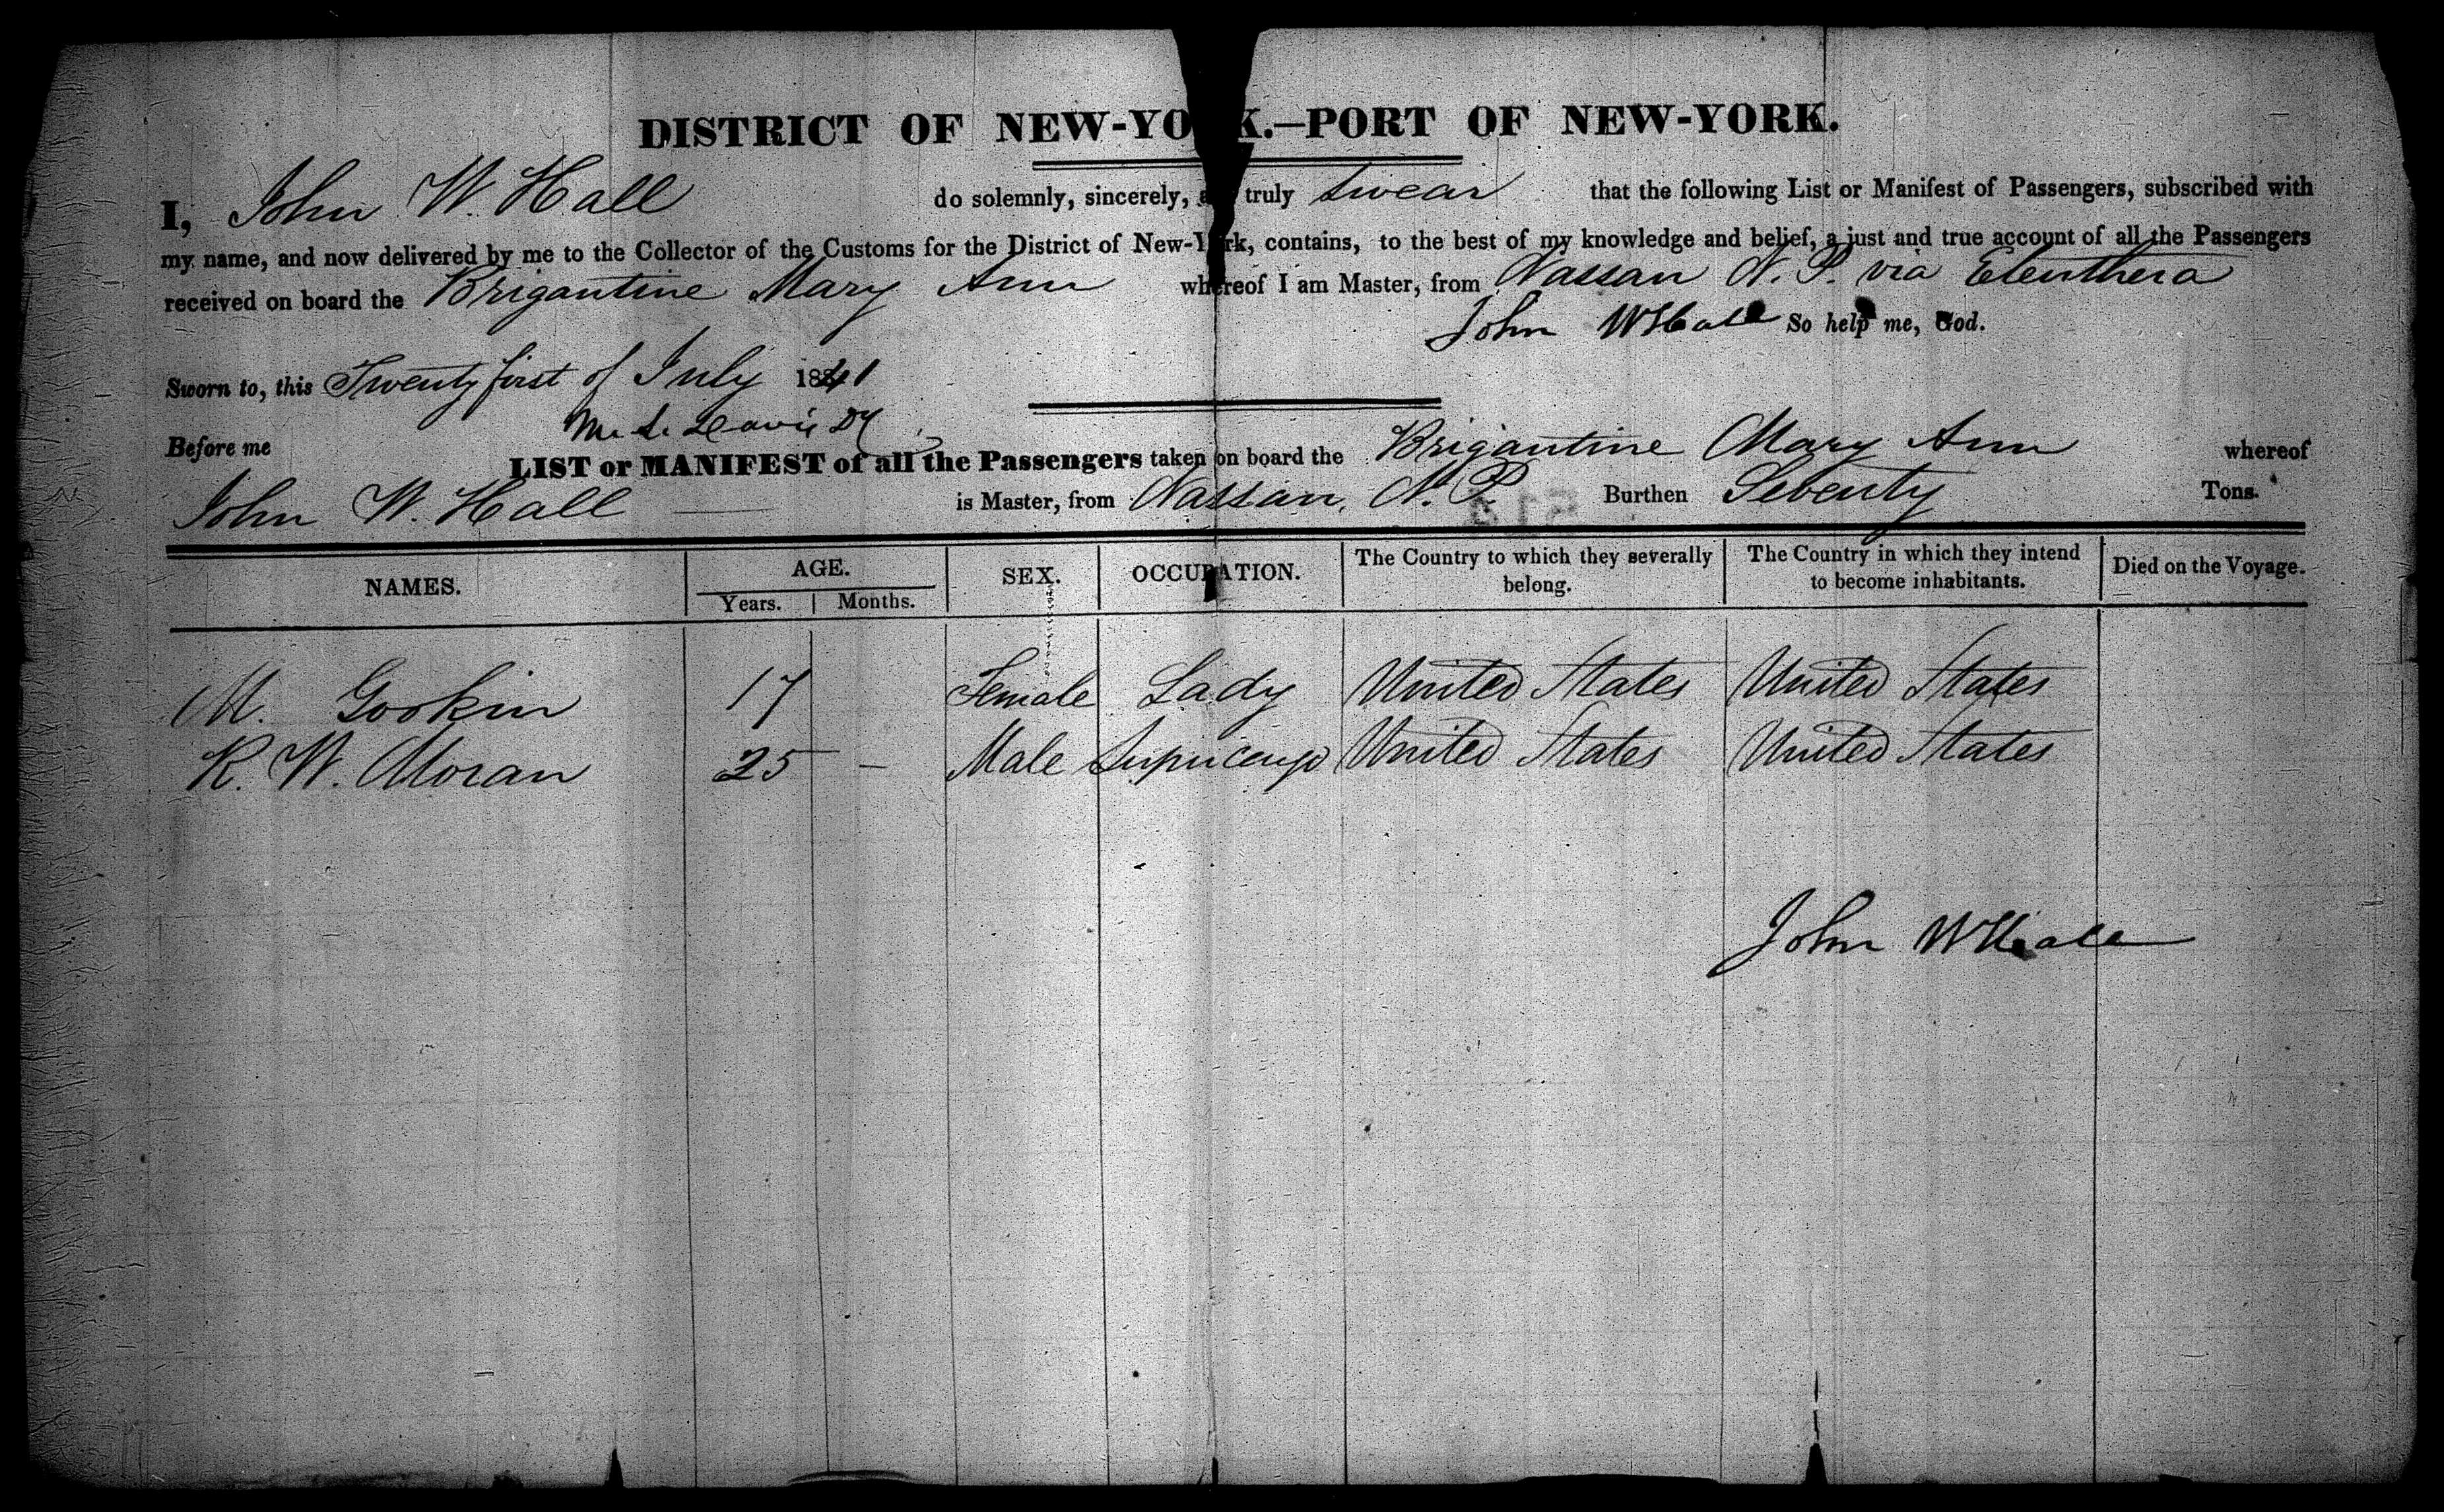 DISTRICT OF NEW-YO K.—PORT OF NEW-YORK.
I, John W. Hall do solemnly, sincerely, a truly swear that the following List or Manifest of Passengers, subscribed with
my name, and now delivered by me to the Collector of the Customs for the District of New-York, contains, to the best of my knowledge and belief, a just and true account of all the Passengers
received on board the Brigantine Mary Ann whereof I am Master, from Nassau N. P. via Eleuthera
John W Hall So help me, God.
Sworn to, this Twenty first of July 1841
Before me M. L. Davis Dy
LIST or MANIFEST of all the Passengers taken on board the Brigantine Mary Ann whereof
John W. Hall is Master, from Nassau, N. P. Burthen Seventy Tons.
NAMES. AGE. SEX. OCCUPATION. The Country to which they severally belong. The Country in which they intend to become inhabitants. Died on the Voyage.
Years. Months.
M. Gookin 17 Female Lady United States United States
R. W. Moran 25 — Male United States United States
John W Hall